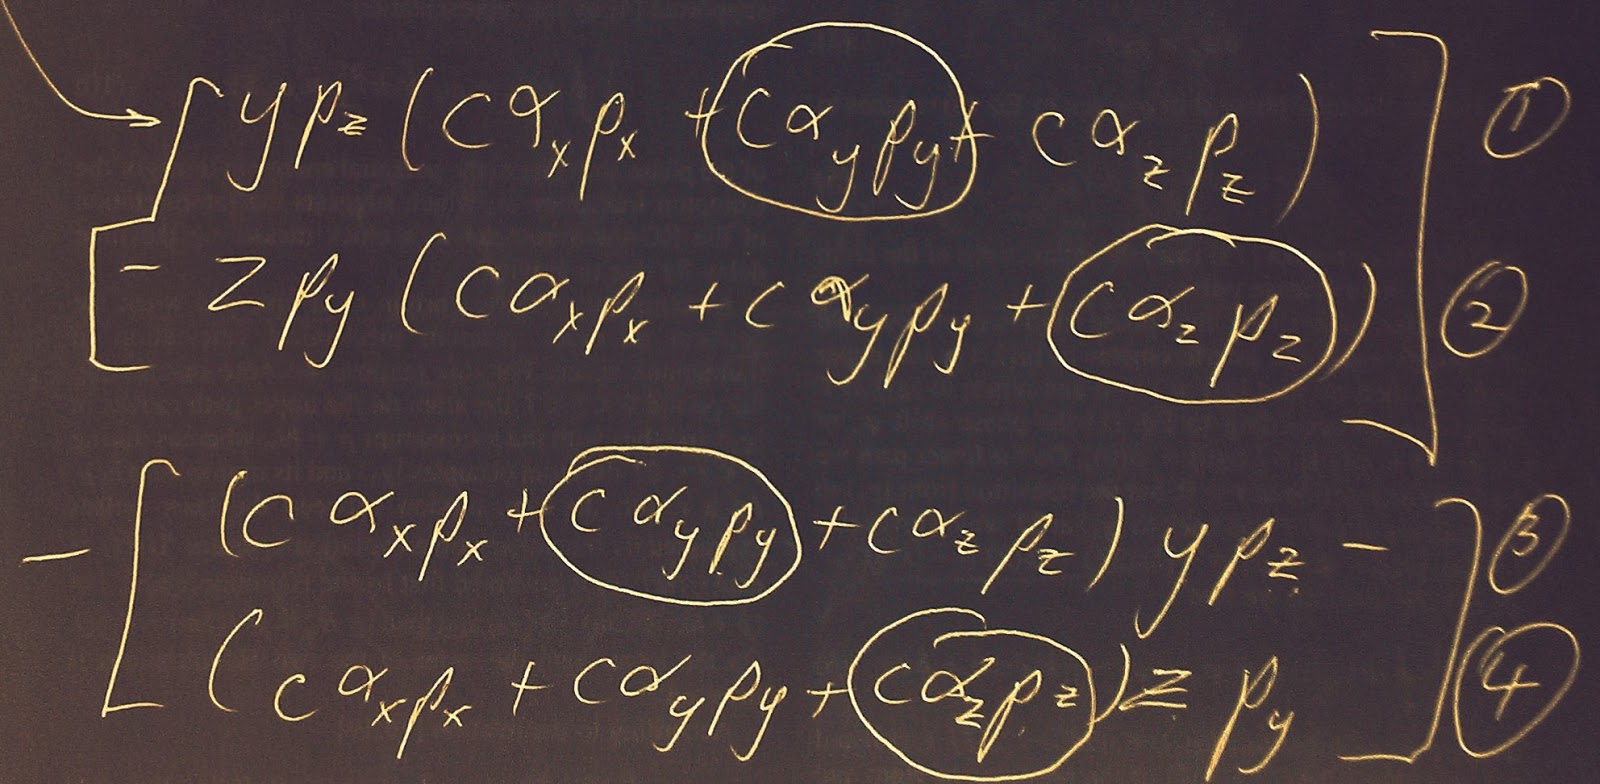 [y p_z (c α_x p_x + c α_y p_y + c α_z p_z) ①
- z p_y (c α_x p_x + c α_y p_y + c α_z p_z)] ②
- [(c α_x p_x + c α_y p_y + c α_z p_z) y p_z - ③
(c α_x p_x + c α_y p_y + c α_z p_z) z p_y] ④